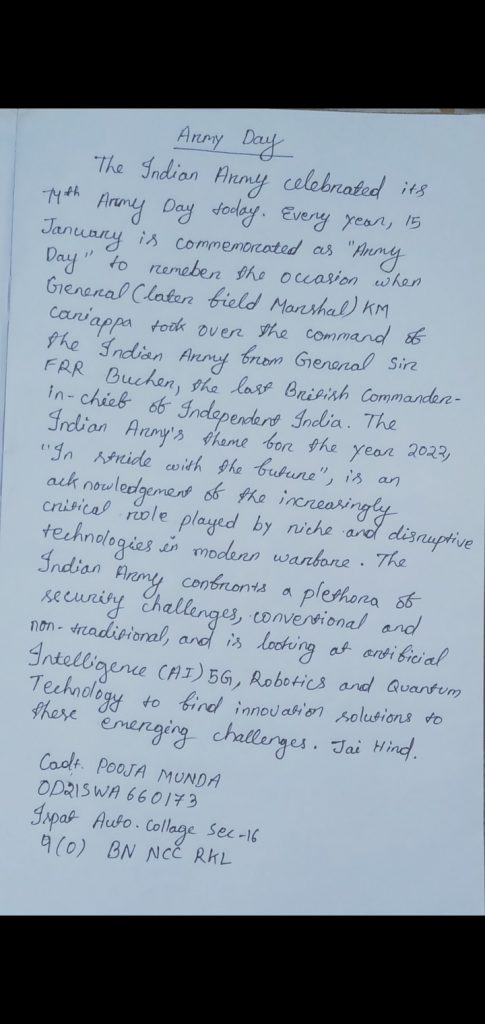 Army Day
The Indian Army celebrated its
74th Army Day today. Every year, 15
January is commemorated as "Army
Day" to remeber the occasion when
General (later field Marshal) KM
cariappa took over the command of
the Indian Army from General Sir
FRR Bucher, the last British Commander-
in-chief of Independent India. The
Indian Army's theme for the year 2022,
"In stride with the future", is an
acknowledgement of the increasingly
critical role played by niche and disruptive
technologies in modern warfare. The
Indian Army confronts a plethora of
security challenges, conventional and
non-traditional, and is looking at artificial
Intelligence (AI) 5G, Robotics and Quantum
Technology to find innovation solutions to
these emerging challenges. Jai Hind.
Cadt. POOJA MUNDA
OD21SWA660173
Ispat Auto. Collage Sec-16
9(O) BN NCC RKL